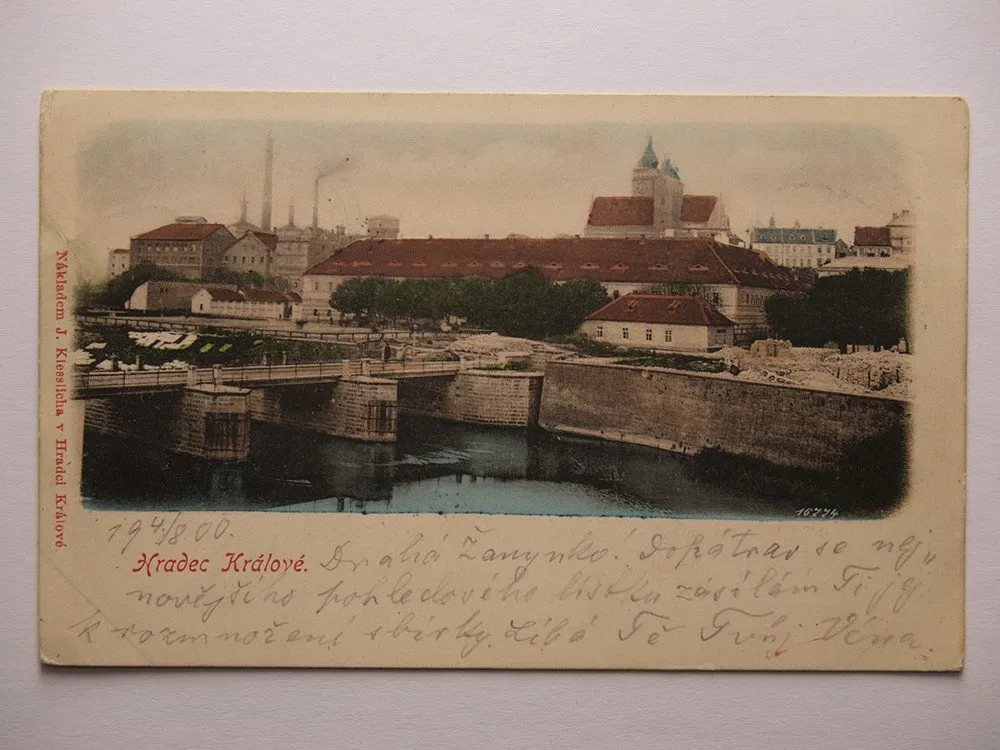 Nákladem J. Kiesslicha v Hradci Králové
16774
19 4/8 00.
Hradec Králové.
Drahá Žanynko! Dopátrav se nej„
novějšího pohledového lístku zásílám Ti jej
k rozmnožení sbírky. Líbá Tě Tvůj Véna.